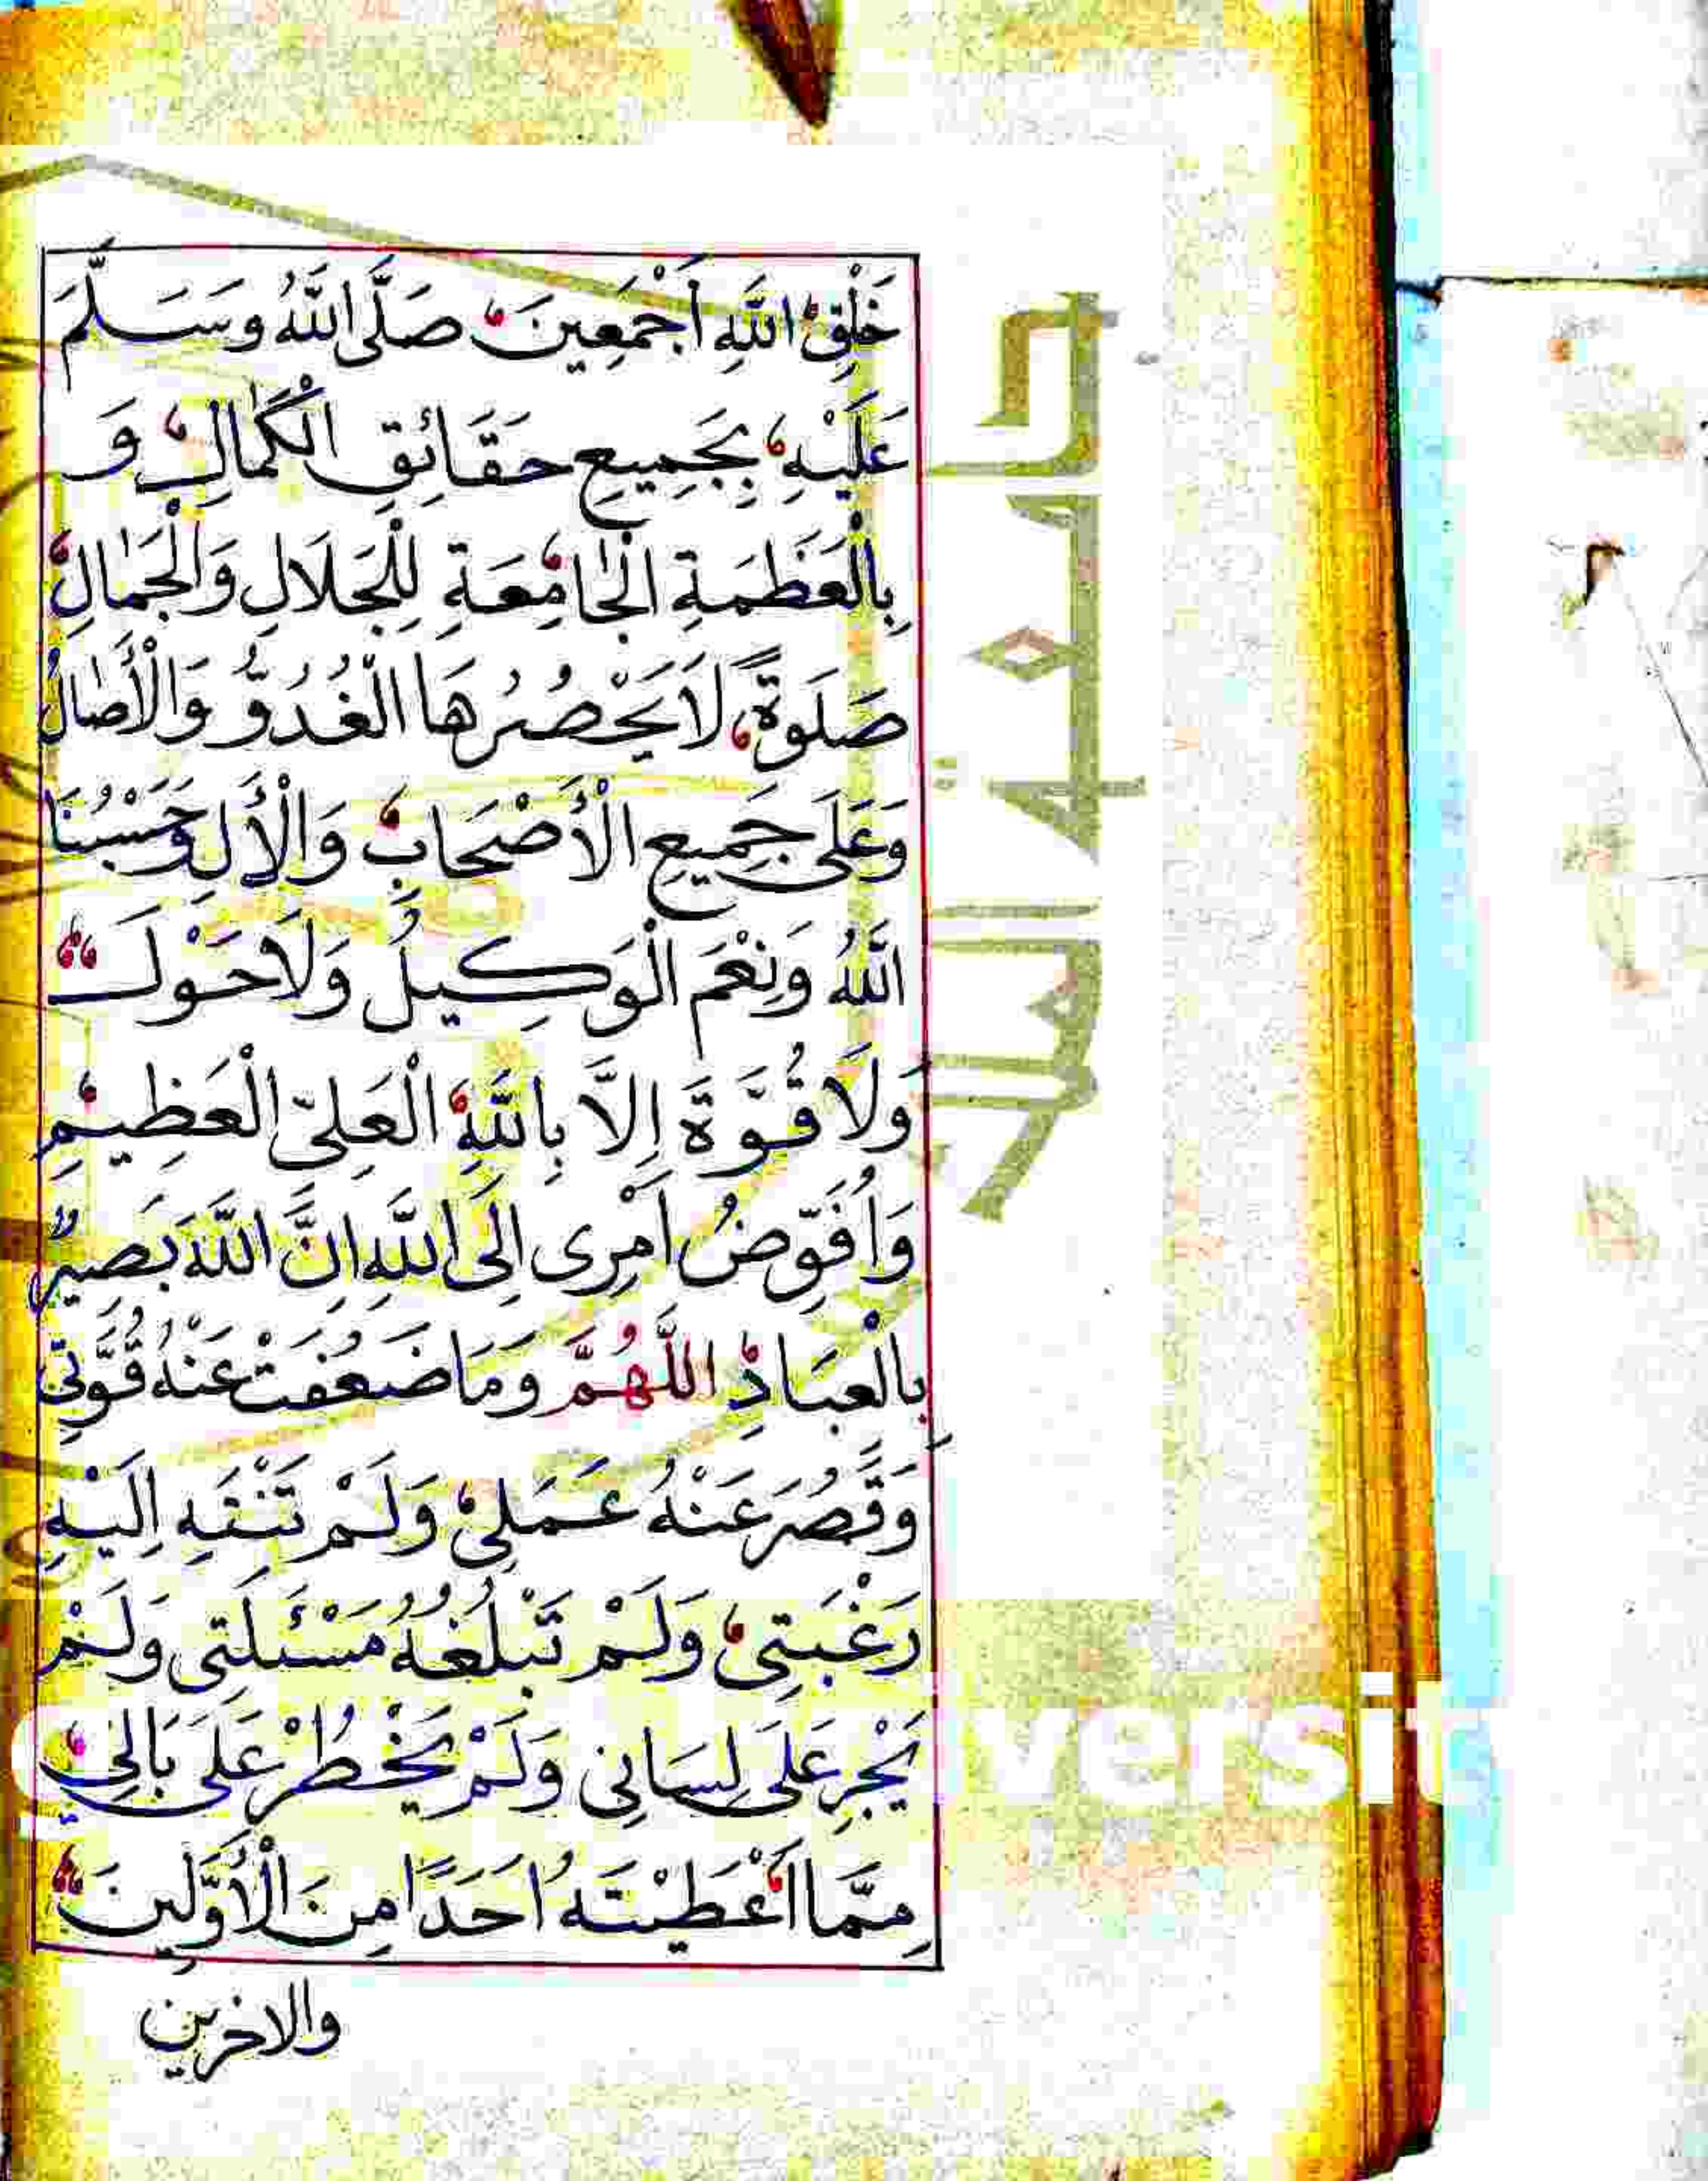 خَلْقِ اللهِ أَجْمَعِينَ، صَلَّى اللهُ وَسَلَّمَ
عَلَيْهِ، بِجَمِيعِ حَقَائِقِ الْكَمَالِ، وَ
بِالْعَظَمَةِ الْجَامِعَةِ لِلْجَلَالِ وَالْجَمَالِ،
صَلَوةً، لَا يَحْصُرُهَا الْغُدُوُّ وَالْأَصَالُ
وَعَلَى جَمِيعِ الْأَصْحَابِ، وَالْأَلِ وَحَسْبُنَا
اللهُ وَنِعْمَ الْوَكِيلُ وَلَا حَوْلَ
وَلَا قُوَّةَ إِلَّا بِاللهِ، الْعَلِيِّ الْعَظِيمِ،
وَاُفَوِّضُ اَمْرِى اِلَى اللهِ اِنَّ اللهَ بَصِيرٌ
بِالْعِبَادِ اللَّهُمَّ وَمَا ضَعُفَتْ عَنْهُ قُوَّتِي
وَقَصُرَ عَنْهُ عَمَلِي، وَلَمْ تَنْتَهِ اِلَيْهِ
رَغْبَتِي، وَلَمْ تَبْلُغْهُ مَسْئَلَتِى وَلَمْ
يَجْرِ عَلَى لِسَانِى وَلَمْ يَخْطُرْ عَلَى بَالِي،
مِمَّا اَعْطَيْتَهُ اَحَدًا مِنَ الْأَوَّلِينَ
والاخرين
جامعة الملك
versit